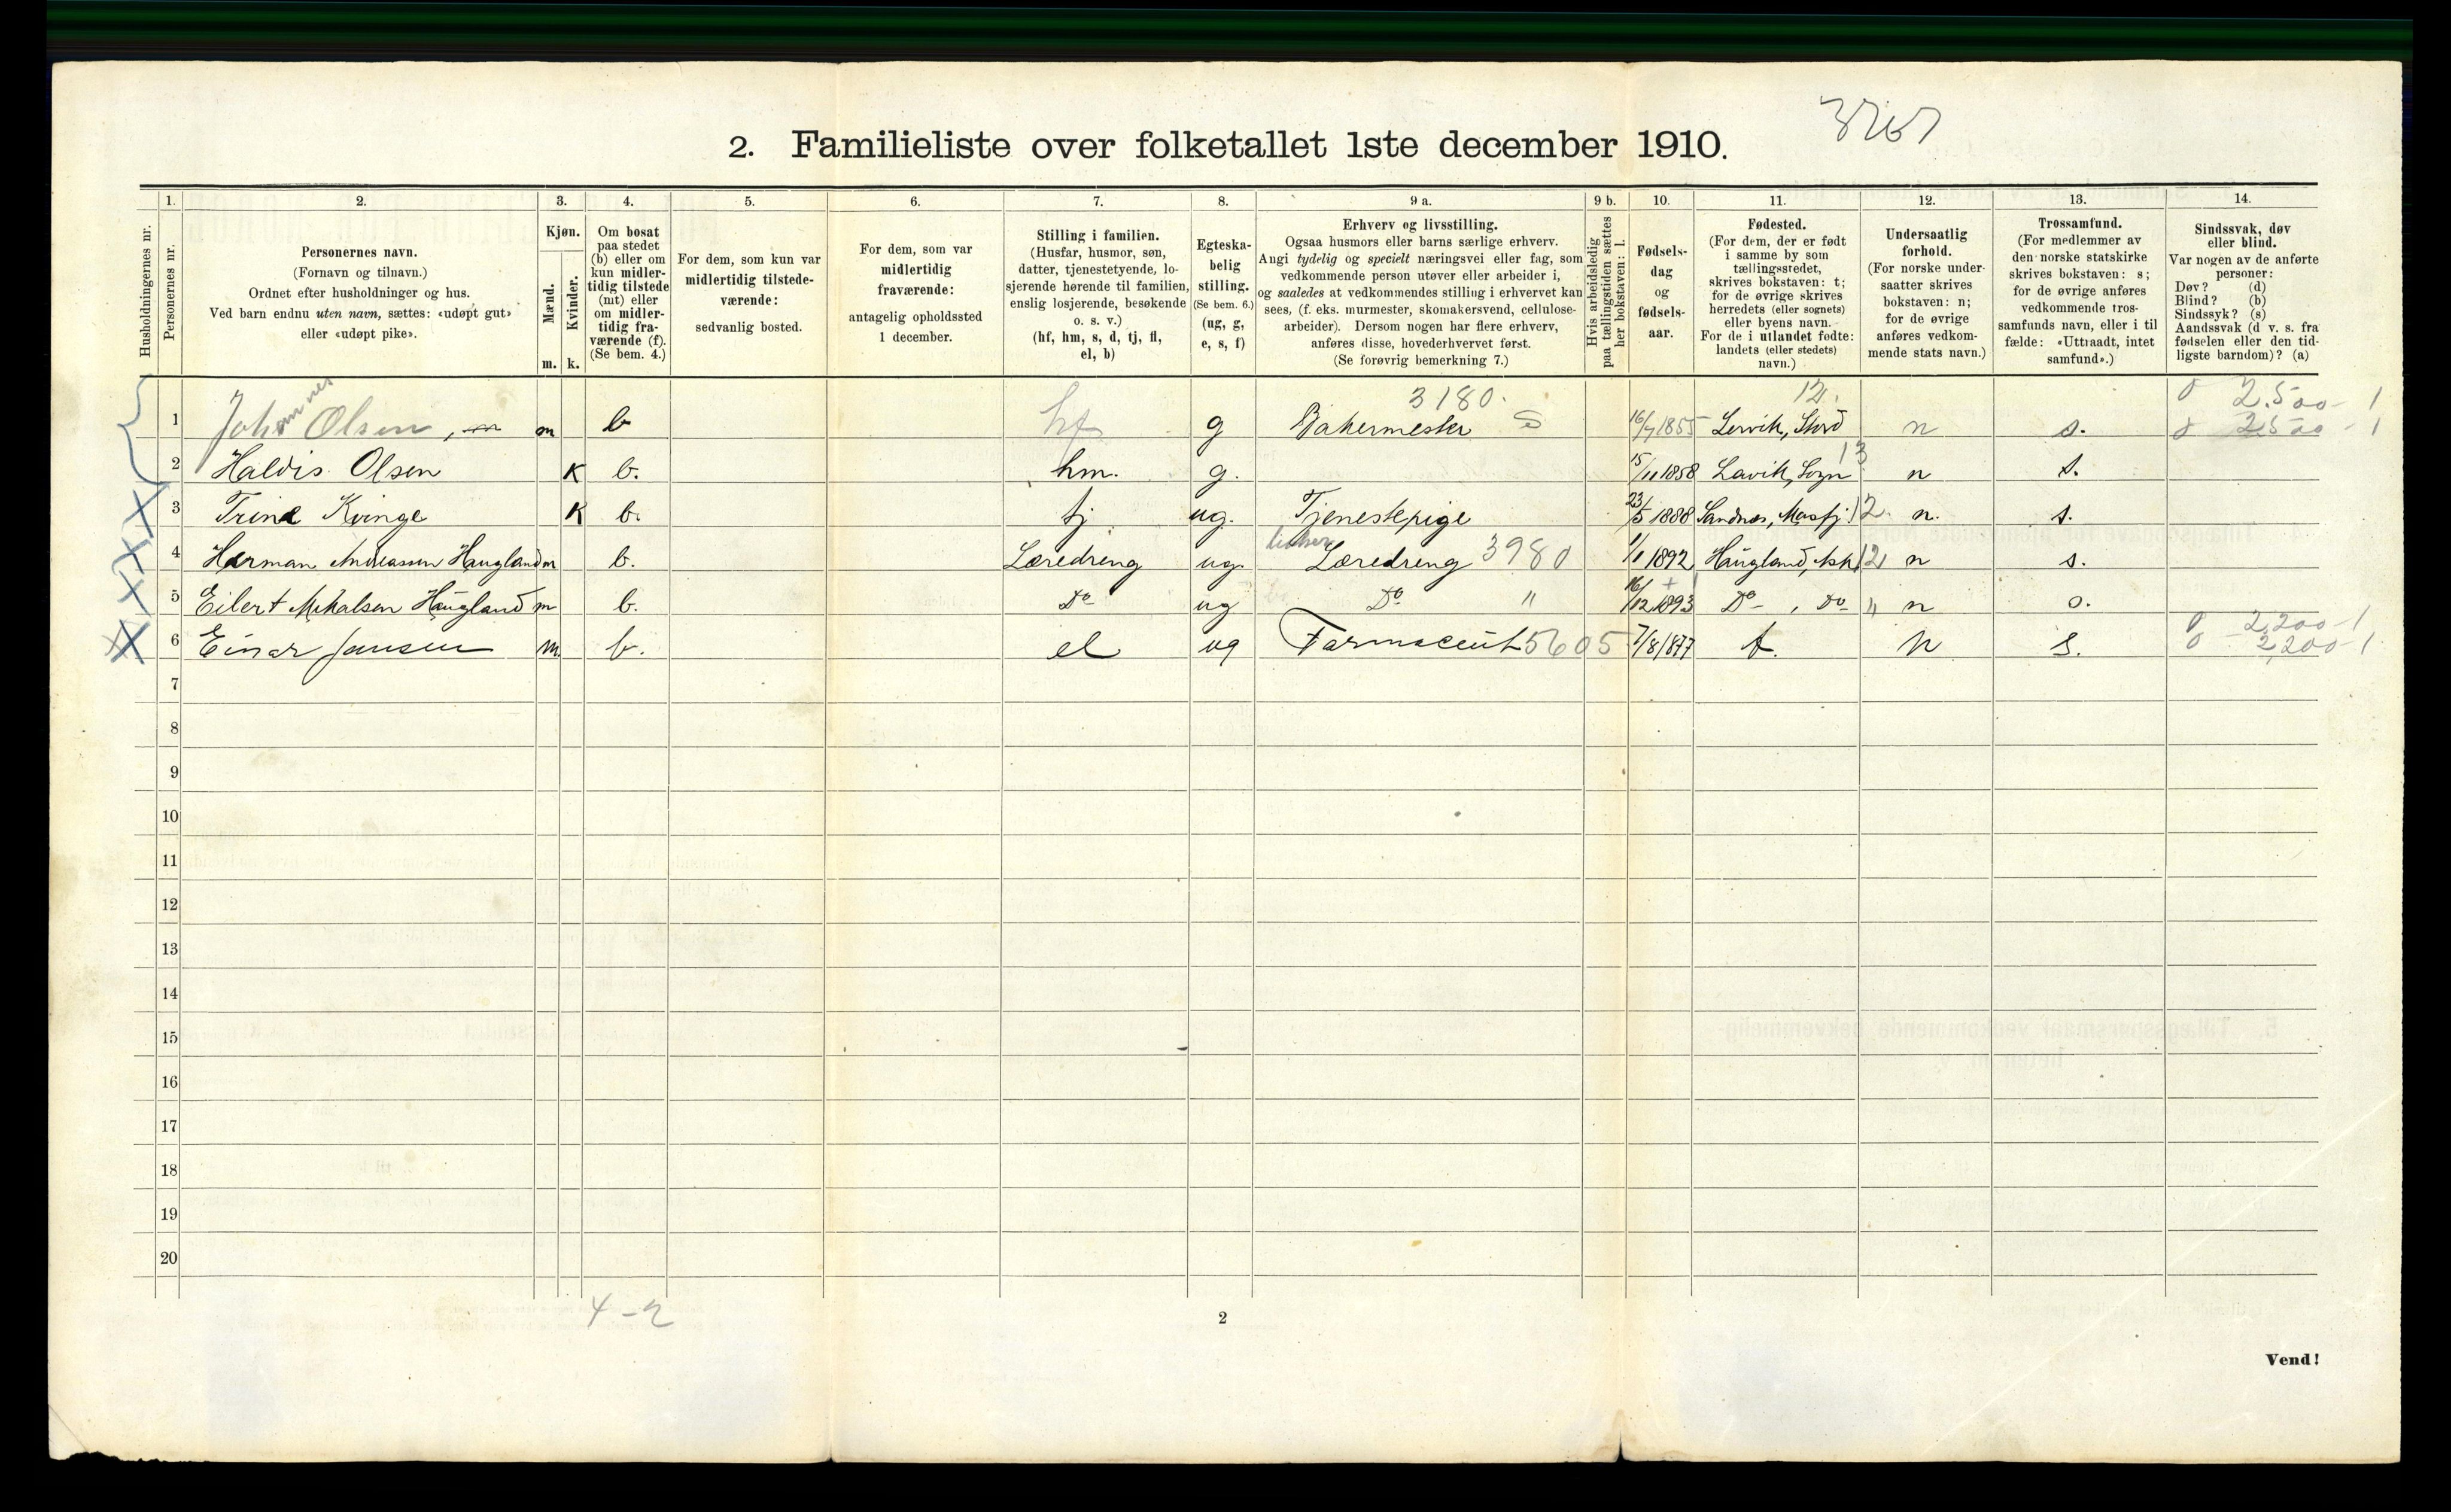 3267
2. Familieliste over folketallet 1ste december 1910.
Husholdningernes nr.
1. Personernes nr.
2. Personernes navn.
(Fornavn og tilnavn.)
Ordnet efter husholdninger og hus.
Ved barn endnu uten navn, sættes: «udøpt gut»
eller «udøpt pike».
3. Kjøn.
Mænd. m.
Kvinder. k.
4. Om bosat
paa stedet
(b) eller om
kun midler-
tidig tilstede
(mt) eller
om midler-
tidig fra-
værende (f).
(Se bem. 4.)
5. For dem, som kun var
midlertidig tilstede-
værende:
sedvanlig bosted.
6. For dem, som var
midlertidig
fraværende:
antagelig opholdssted
1 december.
7. Stilling i familien.
(Husfar, husmor, søn,
datter, tjenestetyende, lo-
sjerende hørende til familien,
enslig losjerende, besøkende
o. s. v.)
(hf, hm, s, d, tj, fl,
el, b)
8. Egteska-
belig
stilling.
(Se bem. 6.)
(ug, g,
e, s, f)
9 a. Erhverv og livsstilling.
Ogsaa husmors eller barns særlige erhverv.
Angi tydelig og specielt næringsvei eller fag, som
vedkommende person utøver eller arbeider i,
og saaledes at vedkommendes stilling i erhvervet kan
sees, (f. eks. murmester, skomakersvend, cellulose-
arbeider). Dersom nogen har flere erhverv,
anføres disse, hovederhvervet først.
(Se forøvrig bemerkning 7.)
9 b. Hvis arbeidsledig
paa tællingstiden sættes
her bokstaven: l.
10. Fødsels-
dag
og
fødsels-
aar.
11. Fødested.
(For dem, der er født
i samme by som
tællingsstedet,
skrives bokstaven: t;
for de øvrige skrives
herredets (eller sognets)
eller byens navn.
For de i utlandet fødte:
landets (eller stedets)
navn.)
12. Undersaatlig
forhold.
(For norske under-
saatter skrives
bokstaven: n;
for de øvrige
anføres vedkom-
mende stats navn.)
13. Trossamfund.
(For medlemmer av
den norske statskirke
skrives bokstaven: s;
for de øvrige anføres
vedkommende tros-
samfunds navn, eller i til-
fælde: «Uttraadt, intet
samfund».)
14. Sindssvak, døv
eller blind.
Var nogen av de anførte
personer:
Døv? (d)
Blind? (b)
Sindssyk? (s)
Aandssvak (d. v. s. fra
fødselen eller den tid-
ligste barndom)? (a)
3180. 12. 0 2.500-1
1 Johannes Olsen, m b hf g Bakermester 16/7 1855 Lervik, Stord n s. 0 2500-1
2 Haldis Olsen K b. hm. g. 15/11 1858 Lavik, Sogn 13 n s.
3 Trine Kvinge K b. tj ug. Tjenestepige 23/5 1888 Sandnes, Masfj. 12. n. s.
4 Herman Andreassen Haugland m b. Læredreng ug. Læredreng 3980 1/1 1892 Haugland, Ask 12 n s.
5 Eilert Mikalsen Haugland m b. Do ug Do " 16/12 1893 Do, Do " n s.
0 2,200-1
6 Einar Jansen m. b. el ug Farmaceut 5605 7/8 1877 t. n s. 0 2,200-1
7
8
9
10
11
12
13
14
15
16
17
18
19
20
4-2
2
Vend!